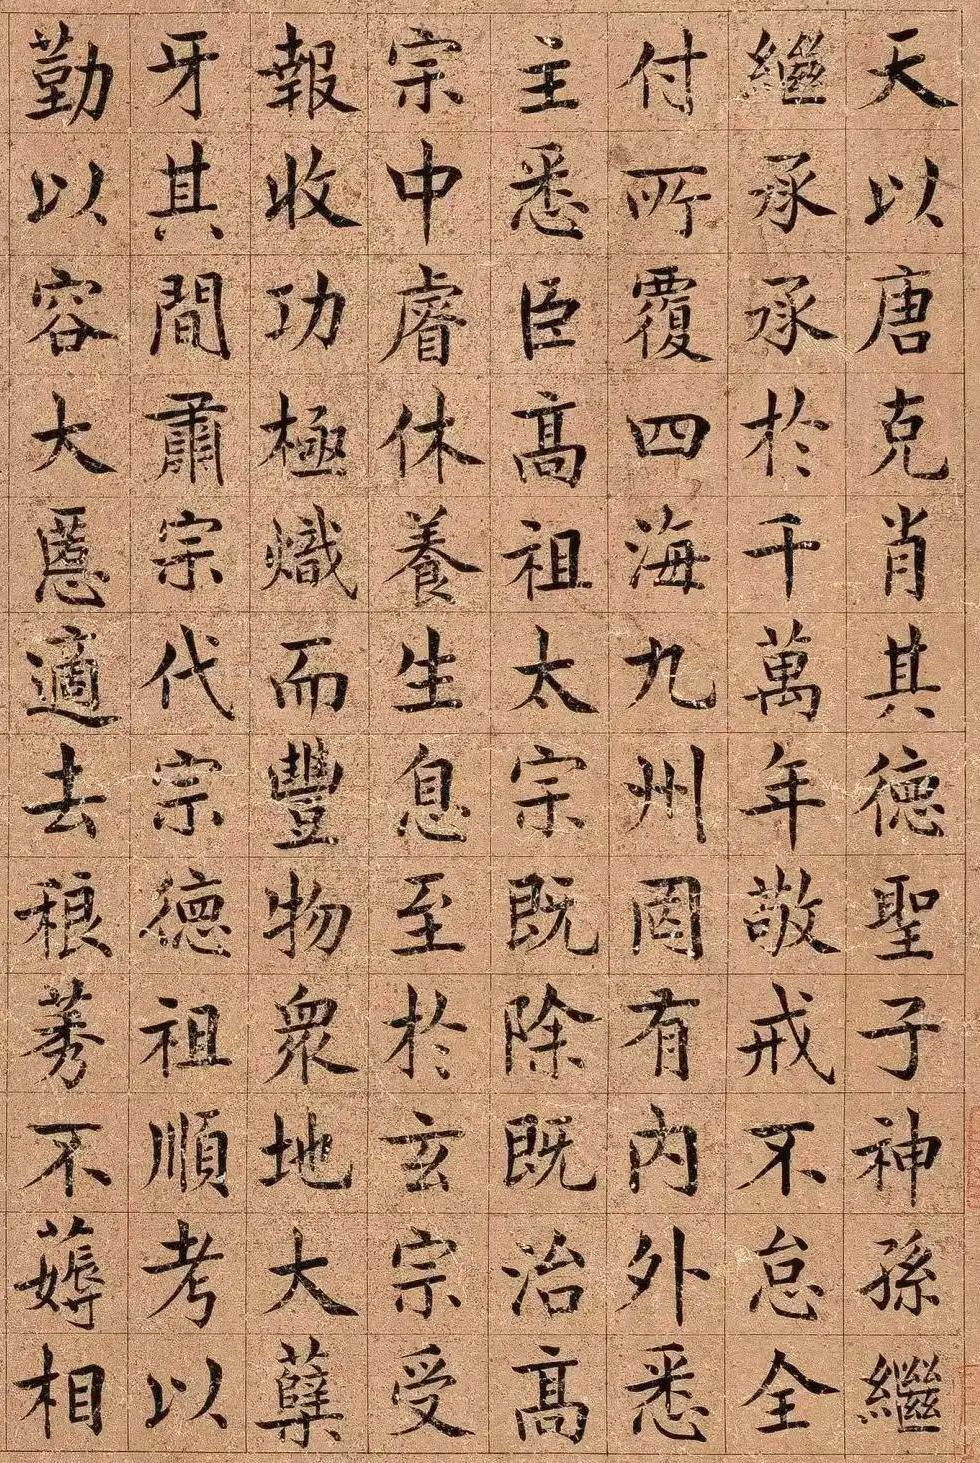 天以唐克肖其德聖子神孫繼
繼承承於千萬年敬戒不怠全
付所覆四海九州罔有内外悉
主悉臣高祖太宗既除既治高
宗中睿休養生息至於玄宗受
報收功極熾而豐物衆地大孽
牙其間肅宗代宗德祖順考以
勤以容大慝適去稂莠不薅相